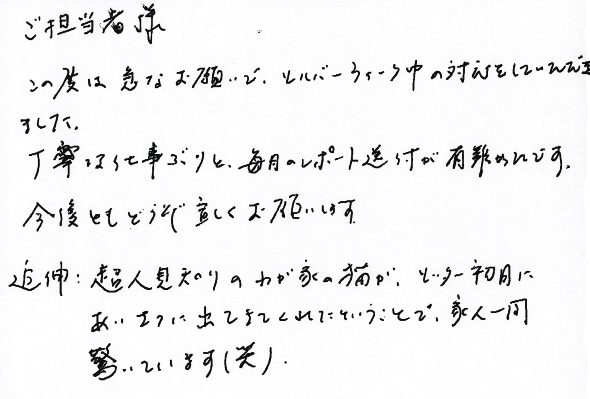 ご担当者様
この度は急なお願いで、シルバーウィーク中の対応をしていただき
ました。
丁寧な仕事ぶりと、毎月のレポート送付が有難かったです。
今後ともどうぞ宜しくお願いします
追伸:超人見知りのわが家の猫が、シッター初日に
あいさつに出てきてくれたということで、家人一同
驚いています(笑).